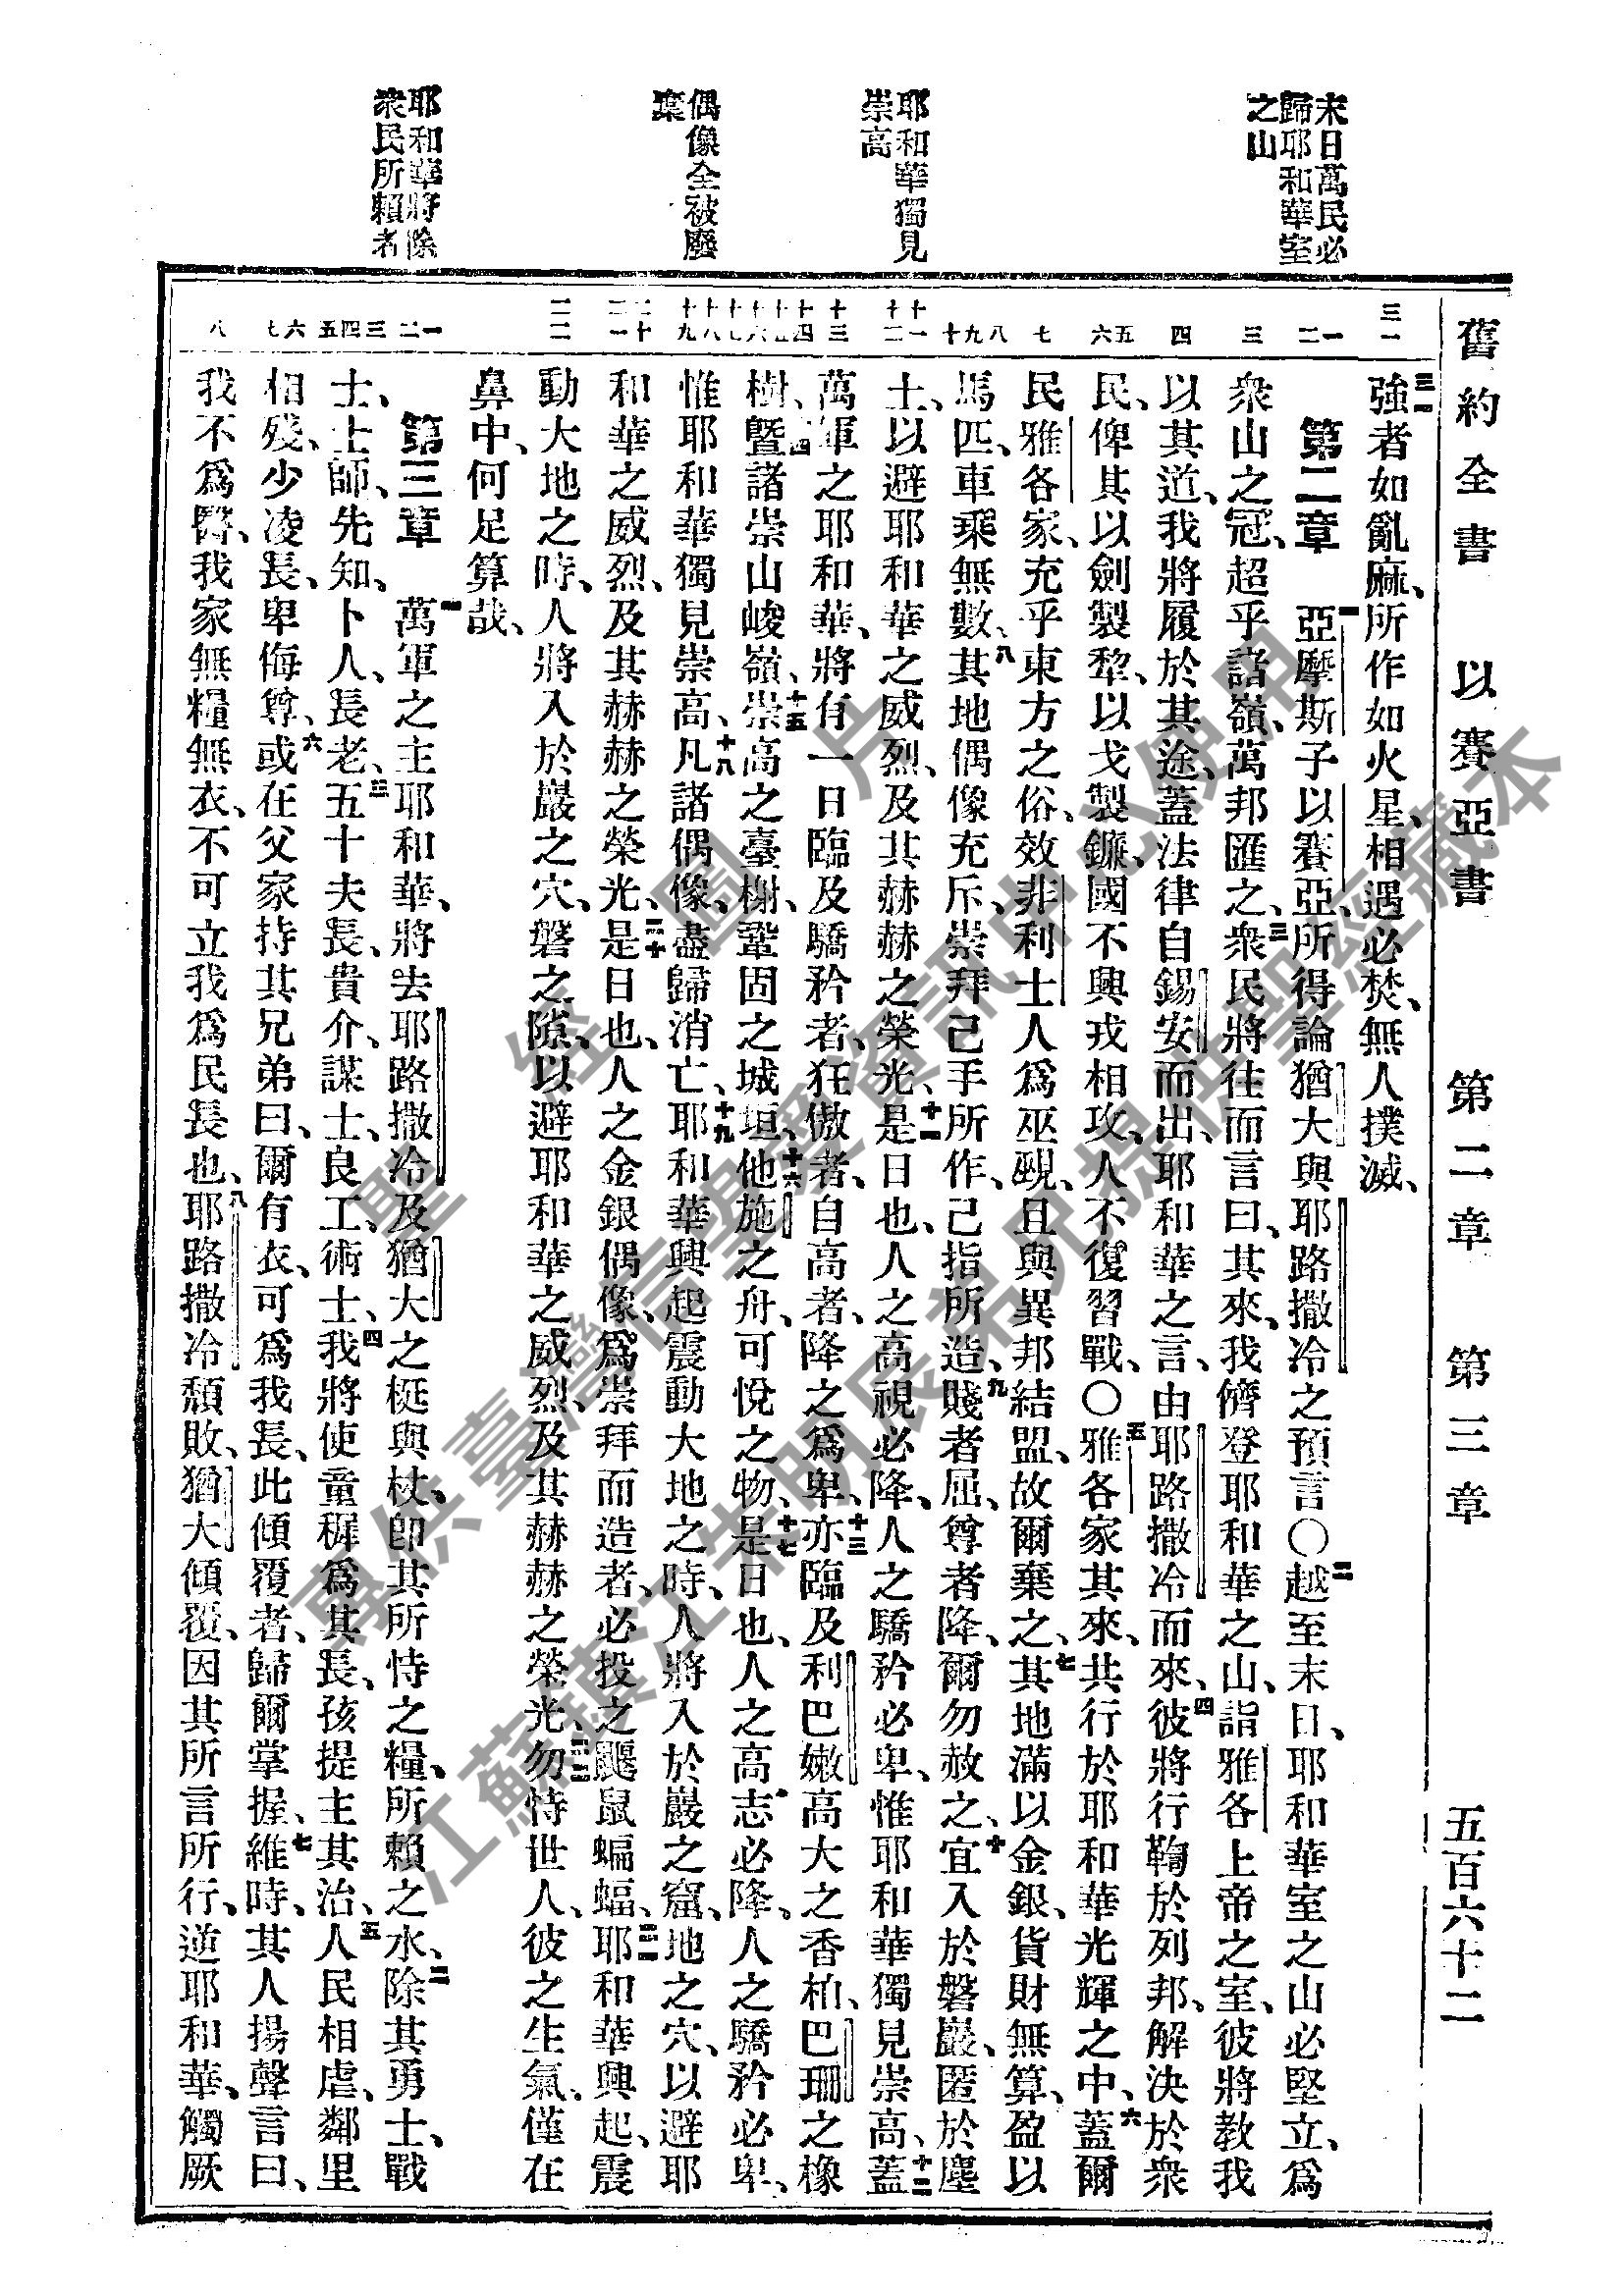 舊約全書 以賽亞書 第二章 第三章 五百六十二
末日萬民必
歸耶和華室
之山
耶和華獨見
崇高
偶像全被廢
棄
耶和華將除
衆民所賴者
三一
一二
三
四
五六
七
八九十
十一十二
十三
十四十五十六十七
十八十九
二十二一
二二
一二
三四五
六七
八
三一強者如亂麻、所作如火星、相遇必焚、無人撲滅、
第二章 一亞摩斯子以賽亞、所得論猶大與耶路撒冷之預言○二越至末日、耶和華室之山必堅立、爲
衆山之冠、超乎諸嶺、萬邦匯之、三衆民將往而言曰、其來、我儕登耶和華之山、詣雅各上帝之室、彼將教我
以其道、我將履於其途、蓋法律自錫安而出、耶和華之言、由耶路撒冷而來、四彼將行鞫於列邦、解決於衆
民、俾其以劍製犂、以戈製鐮、國不興戎相攻、人不復習戰、○五雅各家其來、共行於耶和華光輝之中、六蓋爾
民雅各家、充乎東方之俗、效非利士人爲巫覡、且與異邦結盟、故爾棄之、七其地滿以金銀、貨財無算、盈以
馬匹、車乘無數、八其地偶像充斥、崇拜己手所作、己指所造、九賤者屈、尊者降、爾勿赦之、十宜入於磐巖、匿於塵
土、以避耶和華之威烈、及其赫赫之榮光、十一是日也、人之高視必降、人之驕矜必卑、惟耶和華獨見崇高、十二蓋
萬軍之耶和華、將有一日臨及驕矜者、狂傲者、自高者、降之爲卑、十三亦臨及利巴嫩高大之香柏、巴珊之橡
樹、十四曁諸崇山峻嶺、十五崇高之臺榭、鞏固之城垣、十六他施之舟、可悅之物、十七是日也、人之高志必降、人之驕矜必卑、
惟耶和華獨見崇高、十八凡諸偶像、盡歸消亡、十九耶和華興起震動大地之時、人將入於巖之窟、地之穴、以避耶
和華之威烈、及其赫赫之榮光、二十是日也、人之金銀偶像、爲崇拜而造者、必投之鼴鼠蝙蝠、二一耶和華興起、震
動大地之時、人將入於巖之穴、磐之隙、以避耶和華之威烈、及其赫赫之榮光、二二勿恃世人、彼之生氣、僅在
鼻中、何足算哉、
第三章 一萬軍之主耶和華、將去耶路撒冷及猶大之梃與杖、卽其所恃之糧、所賴之水、二除其勇士、戰
士、士師、先知、卜人、長老、三五十夫長、貴介、謀士、良工、術士、四我將使童穉爲其長、孩提主其治、五人民相虐、鄰里
相殘、少凌長、卑侮尊、六或在父家持其兄弟曰、爾有衣、可爲我長、此傾覆者、歸爾掌握、七維時、其人揚聲言曰、
我不爲醫、我家無糧無衣、不可立我爲民長也、八耶路撒冷頹敗、猶大傾覆、因其所言所行、逆耶和華、觸厥
聖經圖片
專供臺灣信望愛資訊中心使用
江蘇鎮江朱明辰弟兄提供聖經藏本